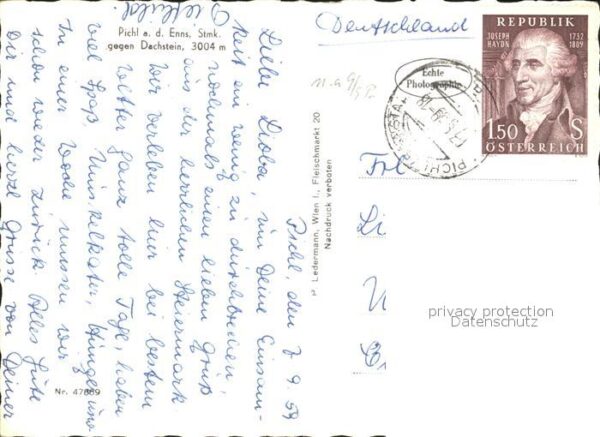 Pichl a. d. Enns, Stmk.
gegen Dachstein, 3004 m
Pichl, den 7. 9. 59
Liebe Liesa, um Deine Einsam-
keit ein wenig zu durchbrechen,
nochmals einen lieben Gruß
aus der herrlichen Steiermark
Wir verleben hier bei bestem
Wetter ganz tolle Tage, haben
viel Spaß
In einer Woche müssen wir
schon wieder zurück. Alles Gute
Dir und herzl Grüsse von Deiner
Nr. 47889
P. Ledermann, Wien I., Fleischmarkt 20
Nachdruck verboten
Deutschland
Echte
Photographie
REPUBLIK
JOSEPH
HAYDN
1732
1809
1.50 S
ÖSTERREICH
PICHL
Frl
Li
U
privacy protection
Datenschutz